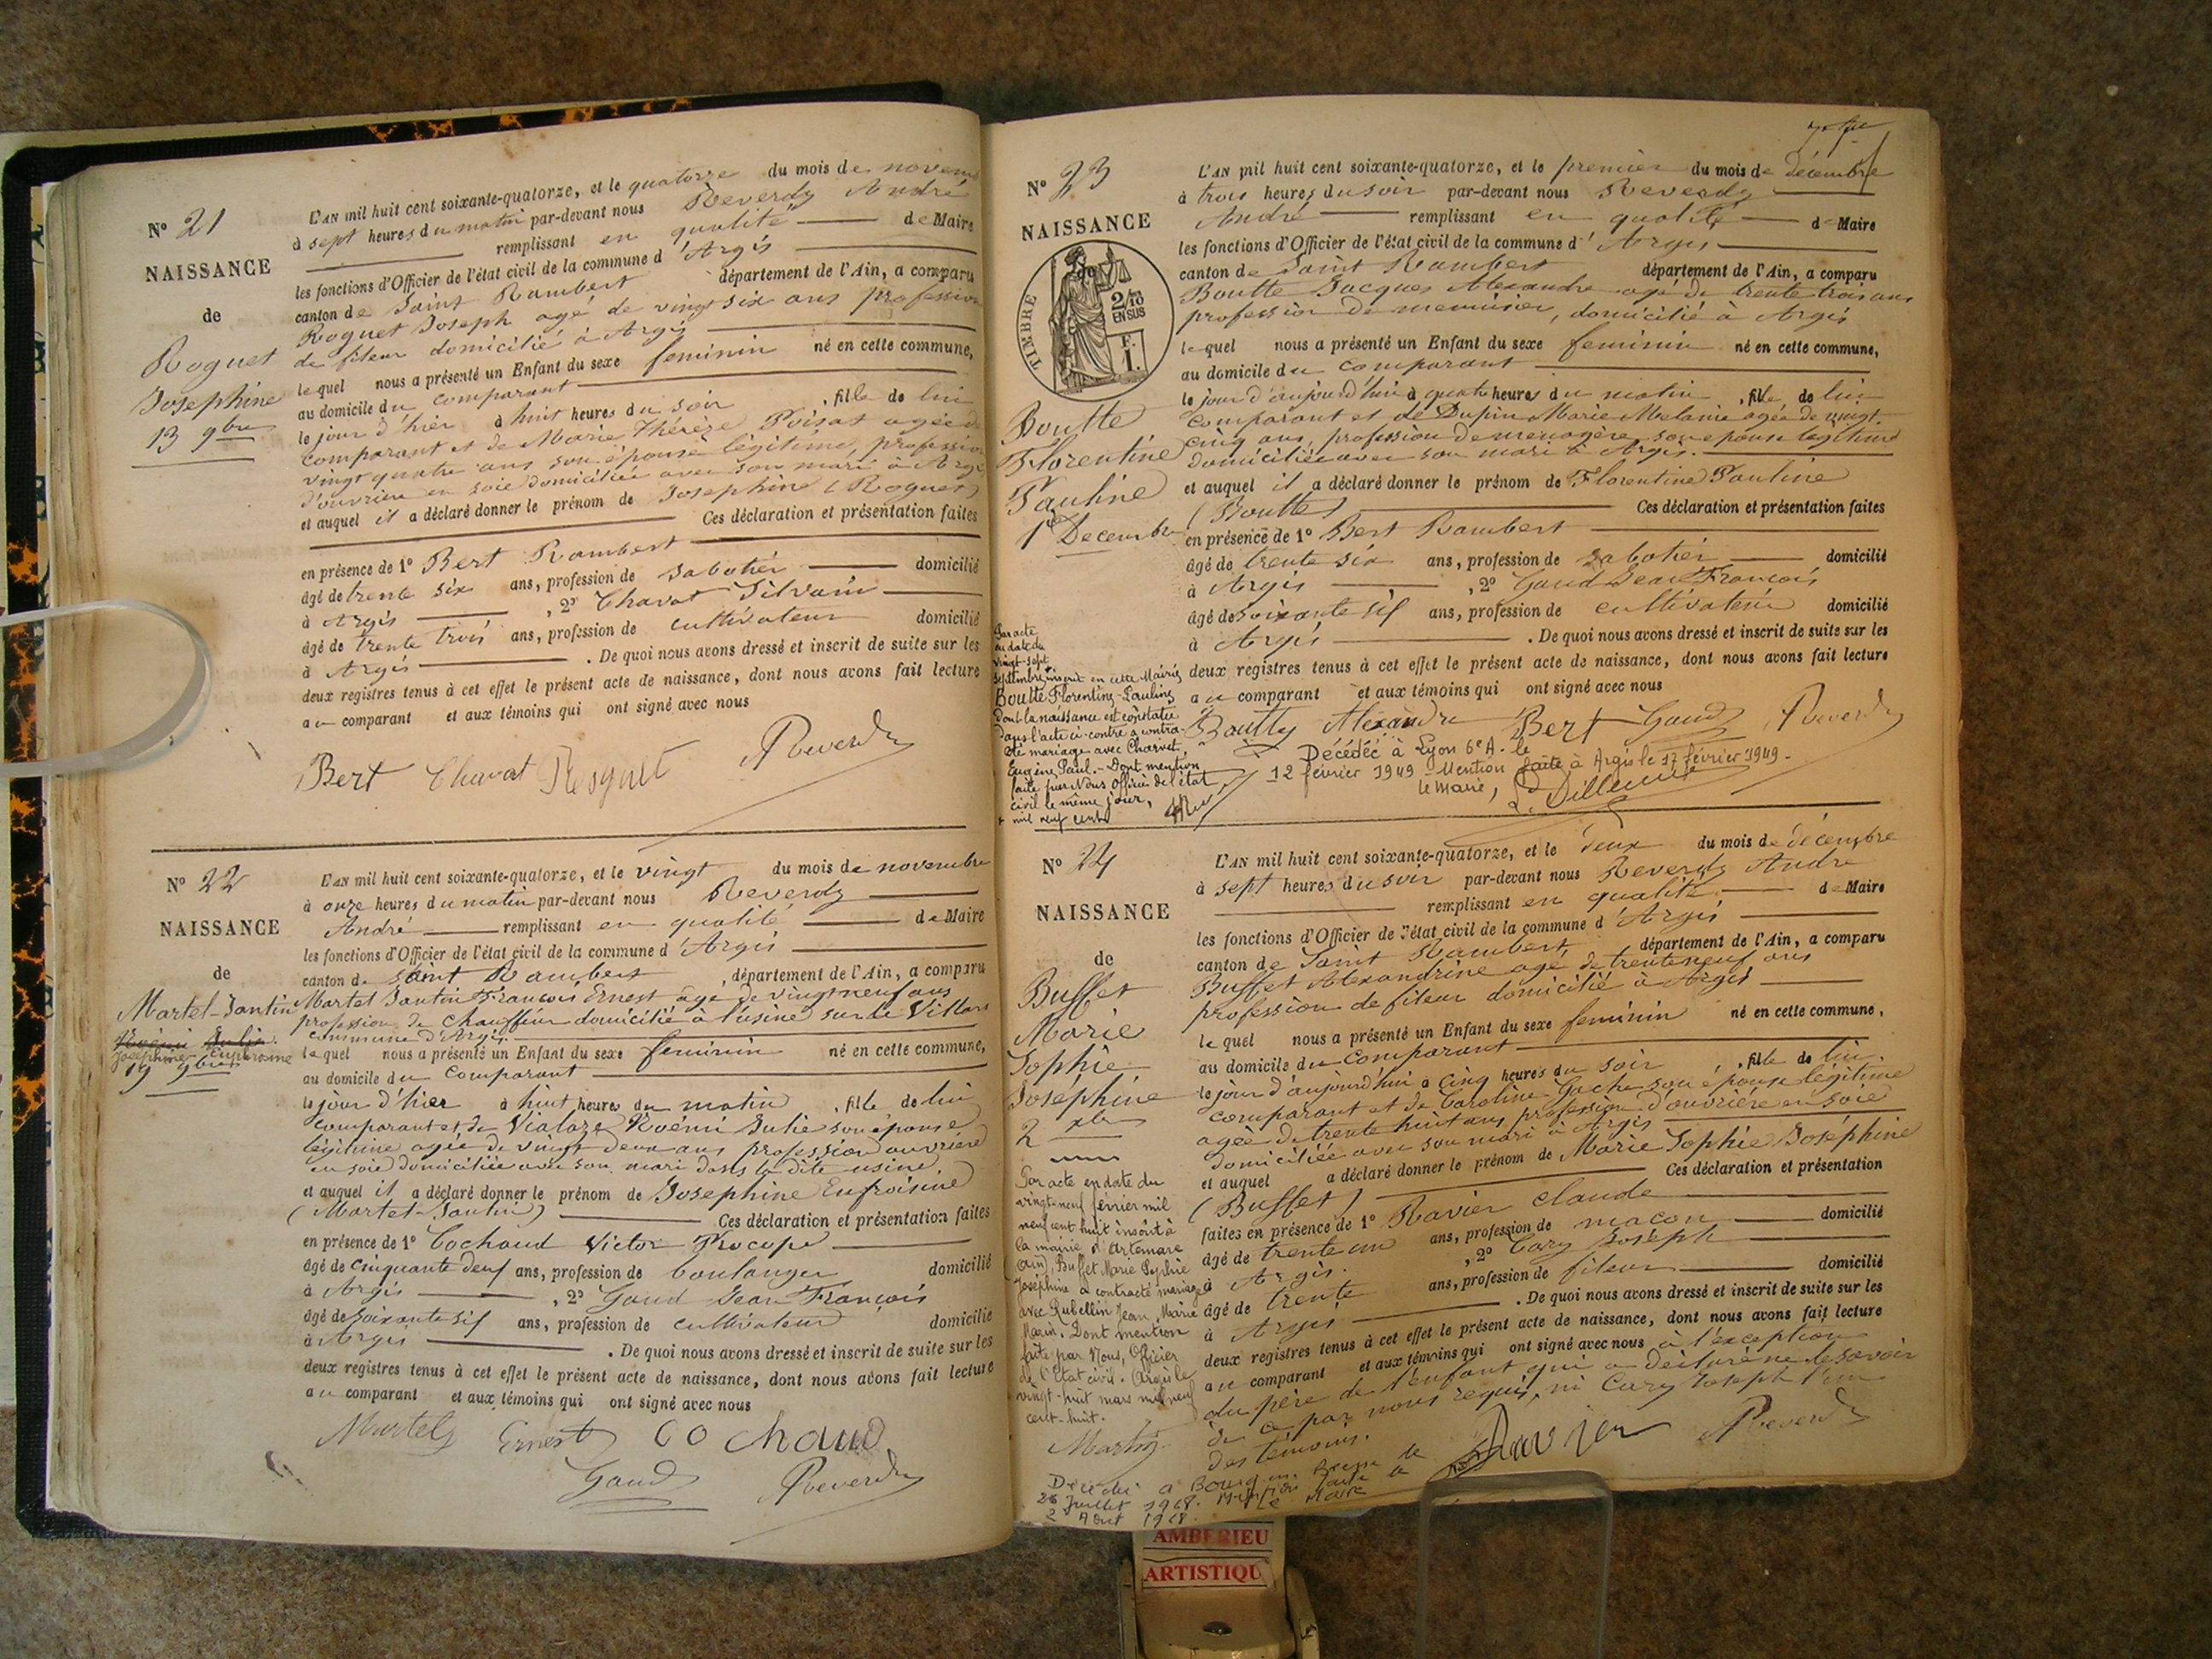 N° 21
NAISSANCE
de
Roguet
Josephine
13 9bre
L'AN mil huit cent soixante-quatorze, et le quatorze du mois de novem
à sept heures du matin par-devant nous Reverdy André
remplissant en qualité de Maire
les fonctions d'Officier de l'état civil de la commune d'Argis
canton de Saint Rambert département de l'Ain, a comparu
Roguet Joseph agé de vingt six ans profession
de fileur domicilié à Argis
lequel nous a présenté un Enfant du sexe feminin né en cette commune,
au domicile du comparant
le jour d'hier à huit heures du soir, fille de lui
comparant et de Marie Thérèse Poisat agée de
vingt quatre ans son épouse légitime, profession
d'ouvrière en soie domiciliée avec son mari à Argis
et auquel il a déclaré donner le prénom de Josephine (Roguet)
Ces déclaration et présentation faites
en présence de 1° Bert Rambert
âgé de trente six ans, profession de sabotier domicilié
à Argis, 2° Chavat Silvain
âgé de trente trois ans, profession de cultivateur domicilié
à Argis. De quoi nous avons dressé et inscrit de suite sur les
deux registres tenus à cet effet le présent acte de naissance, dont nous avons fait lecture
au comparant et aux témoins qui ont signé avec nous
Bert Chavat Reverdy
N° 22
NAISSANCE
de
Martel-Santin
Josephine Eufroisine
19 9bre
L'AN mil huit cent soixante-quatorze, et le vingt du mois de novembre
à onze heures du matin par-devant nous Reverdy
André remplissant en qualité de Maire
les fonctions d'Officier de l'état civil de la commune d'Argis
canton de Saint Rambert, département de l'Ain, a comparu
Martel Santin François Ernest âgé de vingt neuf ans
profession de chauffeur domicilié à l'usine sur le Villars
commune d'Argis.
lequel nous a présenté un Enfant du sexe feminin né en cette commune,
au domicile du comparant
le jour d'hier à huit heures du matin, fille de lui
comparant et de Noémi Julie son épouse
légitime agée de vingt deux ans profession ouvrière
en soie domiciliée avec son mari dans la dite usine.
et auquel il a déclaré donner le prénom de Josephine Eufroisine
(Martel-Santin) Ces déclaration et présentation faites
en présence de 1° Cochaud Victor Procope
âgé de cinquante deux ans, profession de boulanger domicilié
à Argis, 2° Gaud Jean François
âgé de soixante six ans, profession de cultivateur domicilié
à Argis. De quoi nous avons dressé et inscrit de suite sur les
deux registres tenus à cet effet le présent acte de naissance, dont nous avons fait lecture
au comparant et aux témoins qui ont signé avec nous
Martel Ernest Cochaud
Gaud Reverdy
N° 23
NAISSANCE
TIMBRE
2/10
EN SUS
F.
1.
Boutte
Florentine
Pauline
1er Decembre
L'AN mil huit cent soixante-quatorze, et le premier du mois de décembre
à trois heures du soir par-devant nous Reverdy
André remplissant en qualité de Maire
les fonctions d'Officier de l'état civil de la commune d'Argis
canton de Saint Rambert département de l'Ain, a comparu
Boutte Jacques Alexandre agé de trente trois ans
profession de menuisier, domicilié à Argis
lequel nous a présenté un Enfant du sexe feminin né en cette commune,
au domicile du comparant
le jour d'aujourd'hui à quatre heures du matin, fille de lui
comparant et de Dupin Marie Melanie agée de vingt
cinq ans, profession de menagère, son epouse legitime
domiciliée avec son mari à Argis.
et auquel il a déclaré donner le prénom de Florentine Pauline
(Boutte) Ces déclaration et présentation faites
en présence de 1° Bert Rambert
âgé de trente six ans, profession de sabotier domicilié
à Argis, 2° Gaud Jean François
âgé de soixante six ans, profession de cultivateur domicilié
à Argis. De quoi nous avons dressé et inscrit de suite sur les
deux registres tenus à cet effet le présent acte de naissance, dont nous avons fait lecture
au comparant et aux témoins qui ont signé avec nous
Alexandre Bert Gaud Reverdy
Par acte
en date du
vingt-sept
septembre, inscrit en cette Mairie
Boutte Florentine Pauline
dont la naissance est constatée
dans l'acte ci-contre a contrac-
té mariage avec Charvet
Eugène Paul. - Dont mention
faite par Nous Officier de l'état
civil le même jour,
mil neuf cent
Décédée à Lyon 6e A. le
12 février 1949 - Mention faite à Argis le 17 février 1949.
le Maire,
N° 24
NAISSANCE
de
Buffet
Marie
Sophie
Joséphine
2 xbre
L'AN mil huit cent soixante-quatorze, et le deux du mois de décembre
à sept heures du soir par-devant nous Reverdy André
remplissant en qualité de Maire
les fonctions d'Officier de l'état civil de la commune d'Argis
canton de Saint Rambert, département de l'Ain, a comparu
Buffet Alexandrine agé de trente neuf ans
profession de fileur domicilié à Argis
lequel nous a présenté un Enfant du sexe feminin né en cette commune,
au domicile du comparant
le jour d'aujourd'hui à cinq heures du soir, fille de lui
comparant et de Caroline Gache son épouse légitime
agée de trente huit ans profession d'ouvrière en soie
domiciliée avec son mari à Argis
et auquel a déclaré donner le prénom de Marie Sophie Joséphine
(Buffet) Ces déclaration et présentation
faites en présence de 1° Ravier Claude
âgé de trente un ans, profession de maçon domicilié
à Argis., 2° Cary Joseph
âgé de trente ans, profession de fileur domicilié
à Argis. De quoi nous avons dressé et inscrit de suite sur les
deux registres tenus à cet effet le présent acte de naissance, dont nous avons fait lecture
au comparant et aux témoins qui ont signé avec nous à l'exception
du père de l'enfant qui a déclaré ne le savoir
de ce par nous requis, ni Cary Joseph l'un
des témoins.
Ravier Reverdy
Par acte en date du
vingt neuf février mil
neuf cent huit inscrit à
la mairie d'Artemare
(Ain), Buffet Marie Sophie
Joséphine a contracté mariage
avec Rubellin Jean Marie
Marin. Dont mention
faite par Nous, Officier
de l'Etat civil. Argis le
vingt-huit mars mil neuf
cent-huit.
Décédée à Bourg en Bresse le
26 Juillet 1968. Mention faite le
2 Aout 1968. Le Maire
AMBERIEU
ARTISTIQU